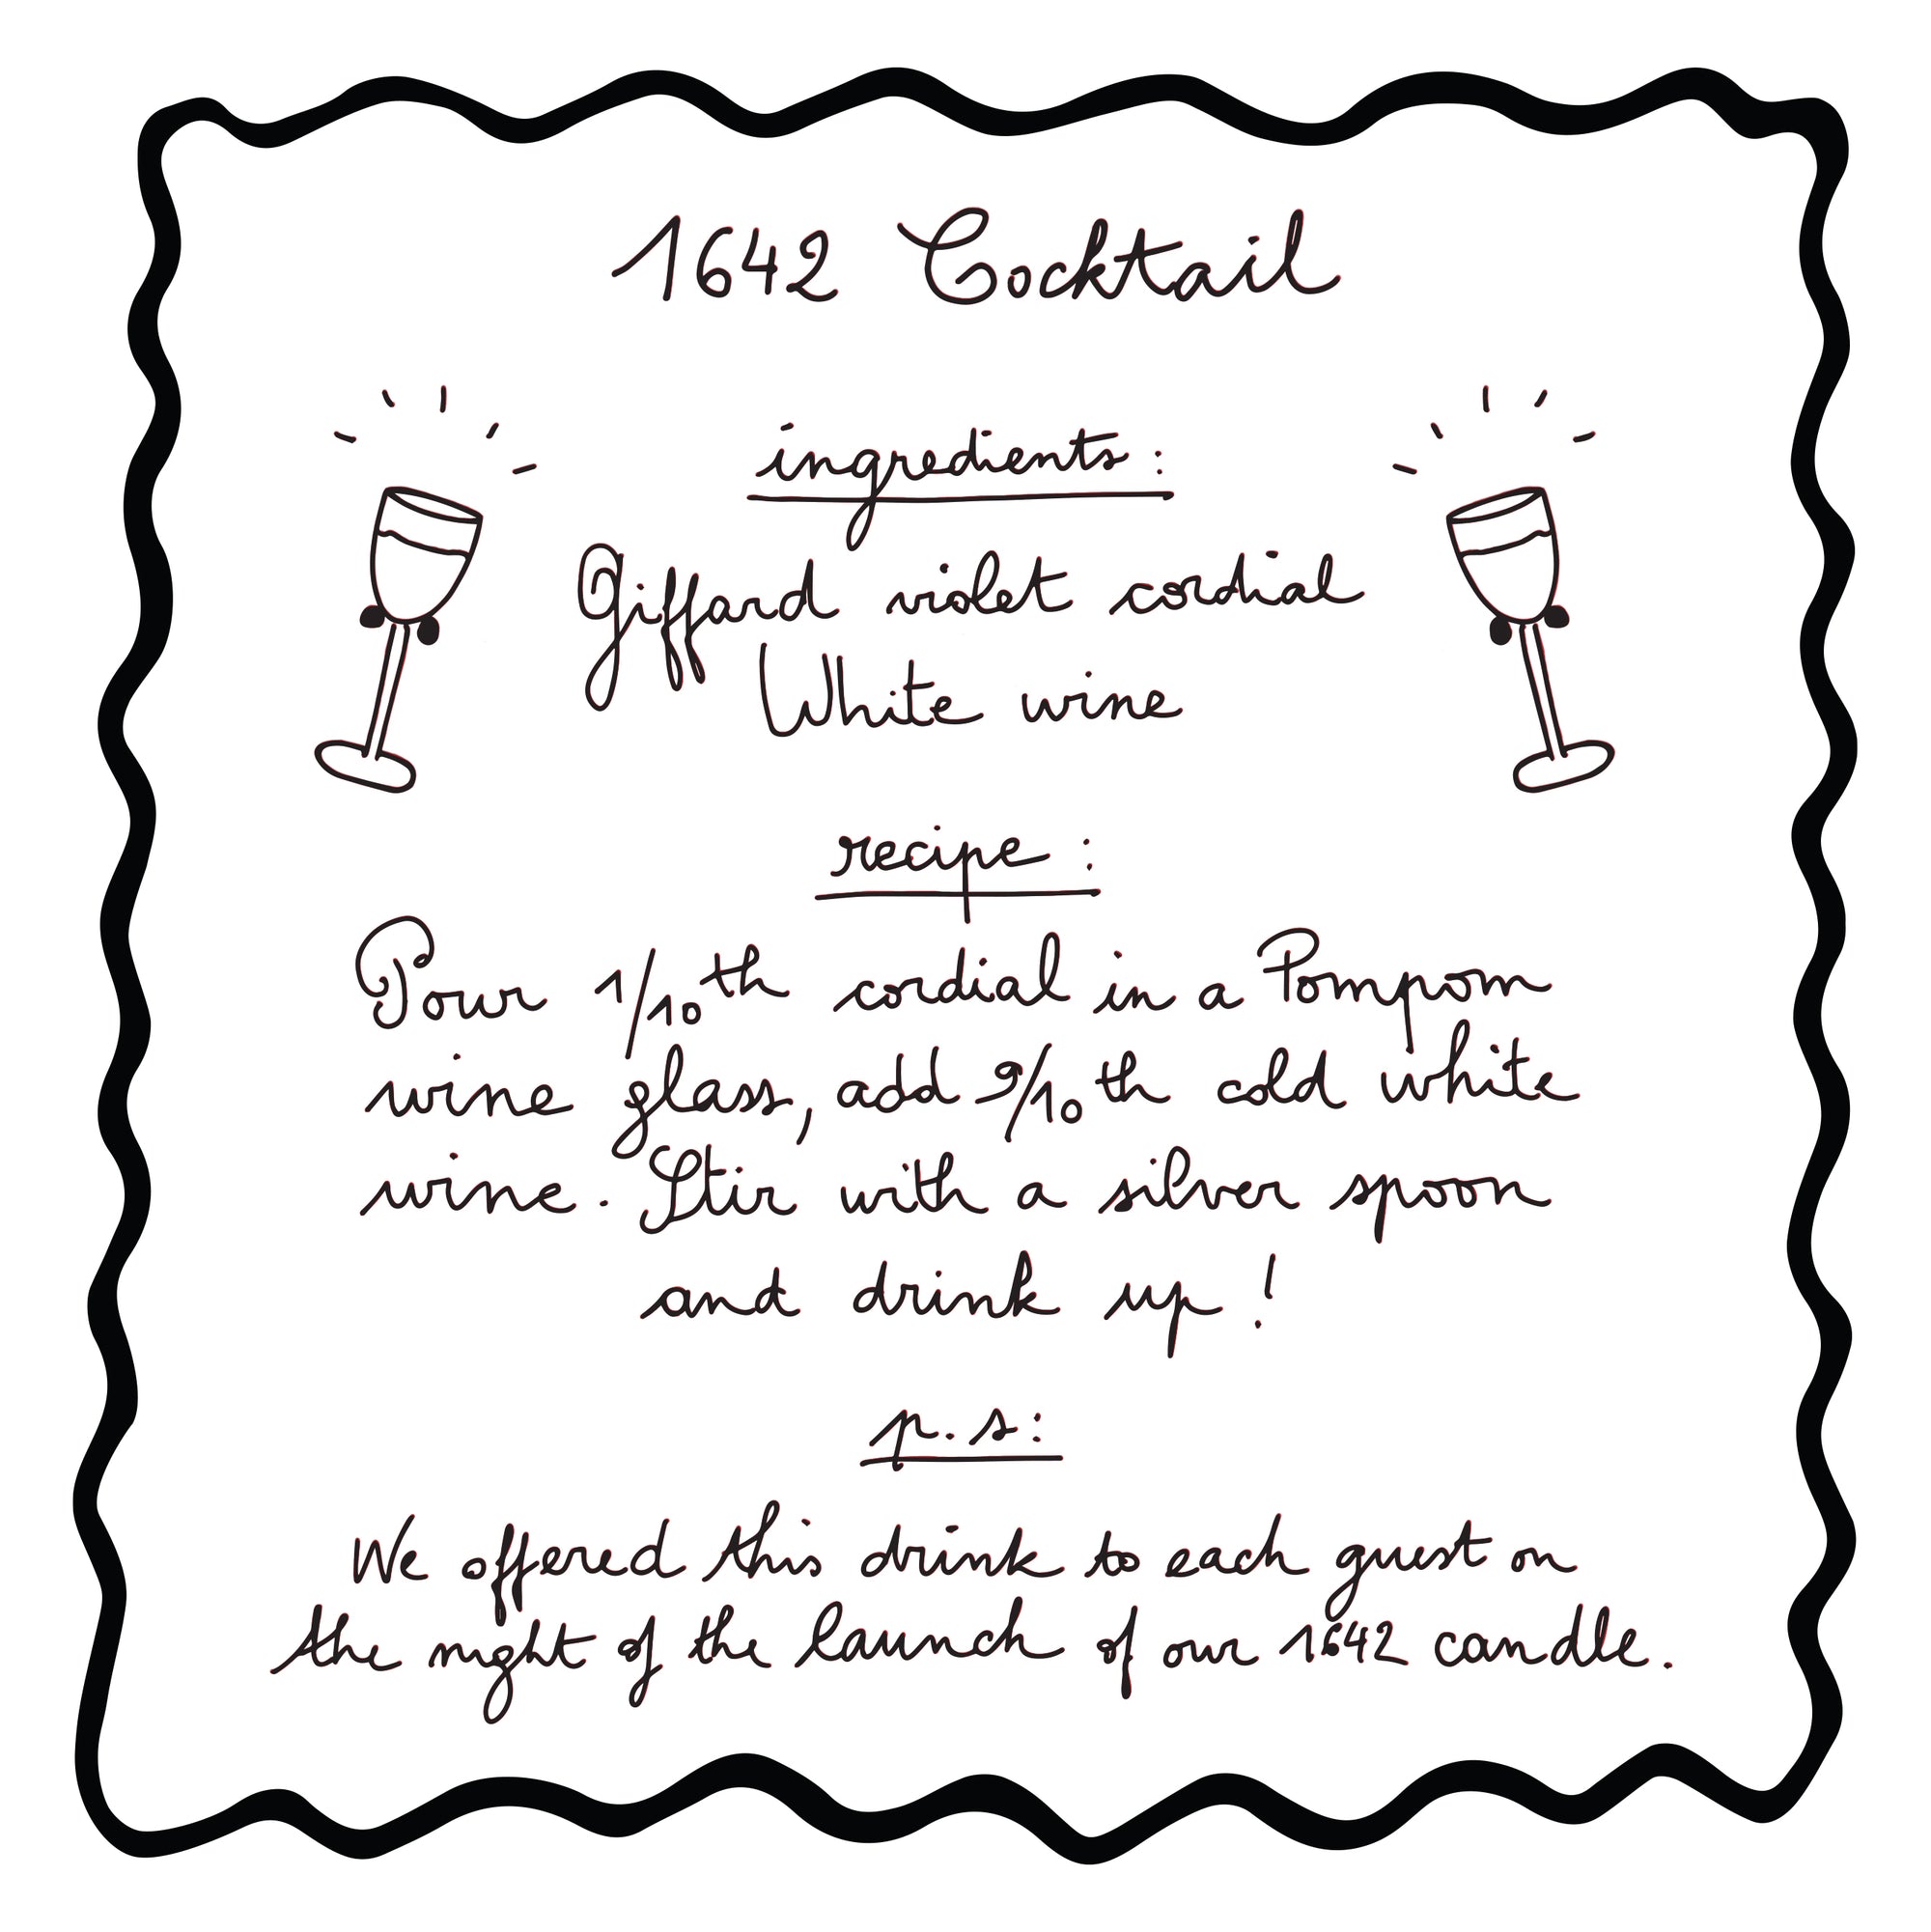 1642 Cocktail
ingredients :
Giffard violet cordial
White wine
recipe :
Pour 1/10th cordial in a Pompom
wine glass, add 9/10 th cold white
wine. Stir with a silver spoon
and drink up !
p.s:
We offered this drink to each guest on
the night of the launch of our 1642 candle.